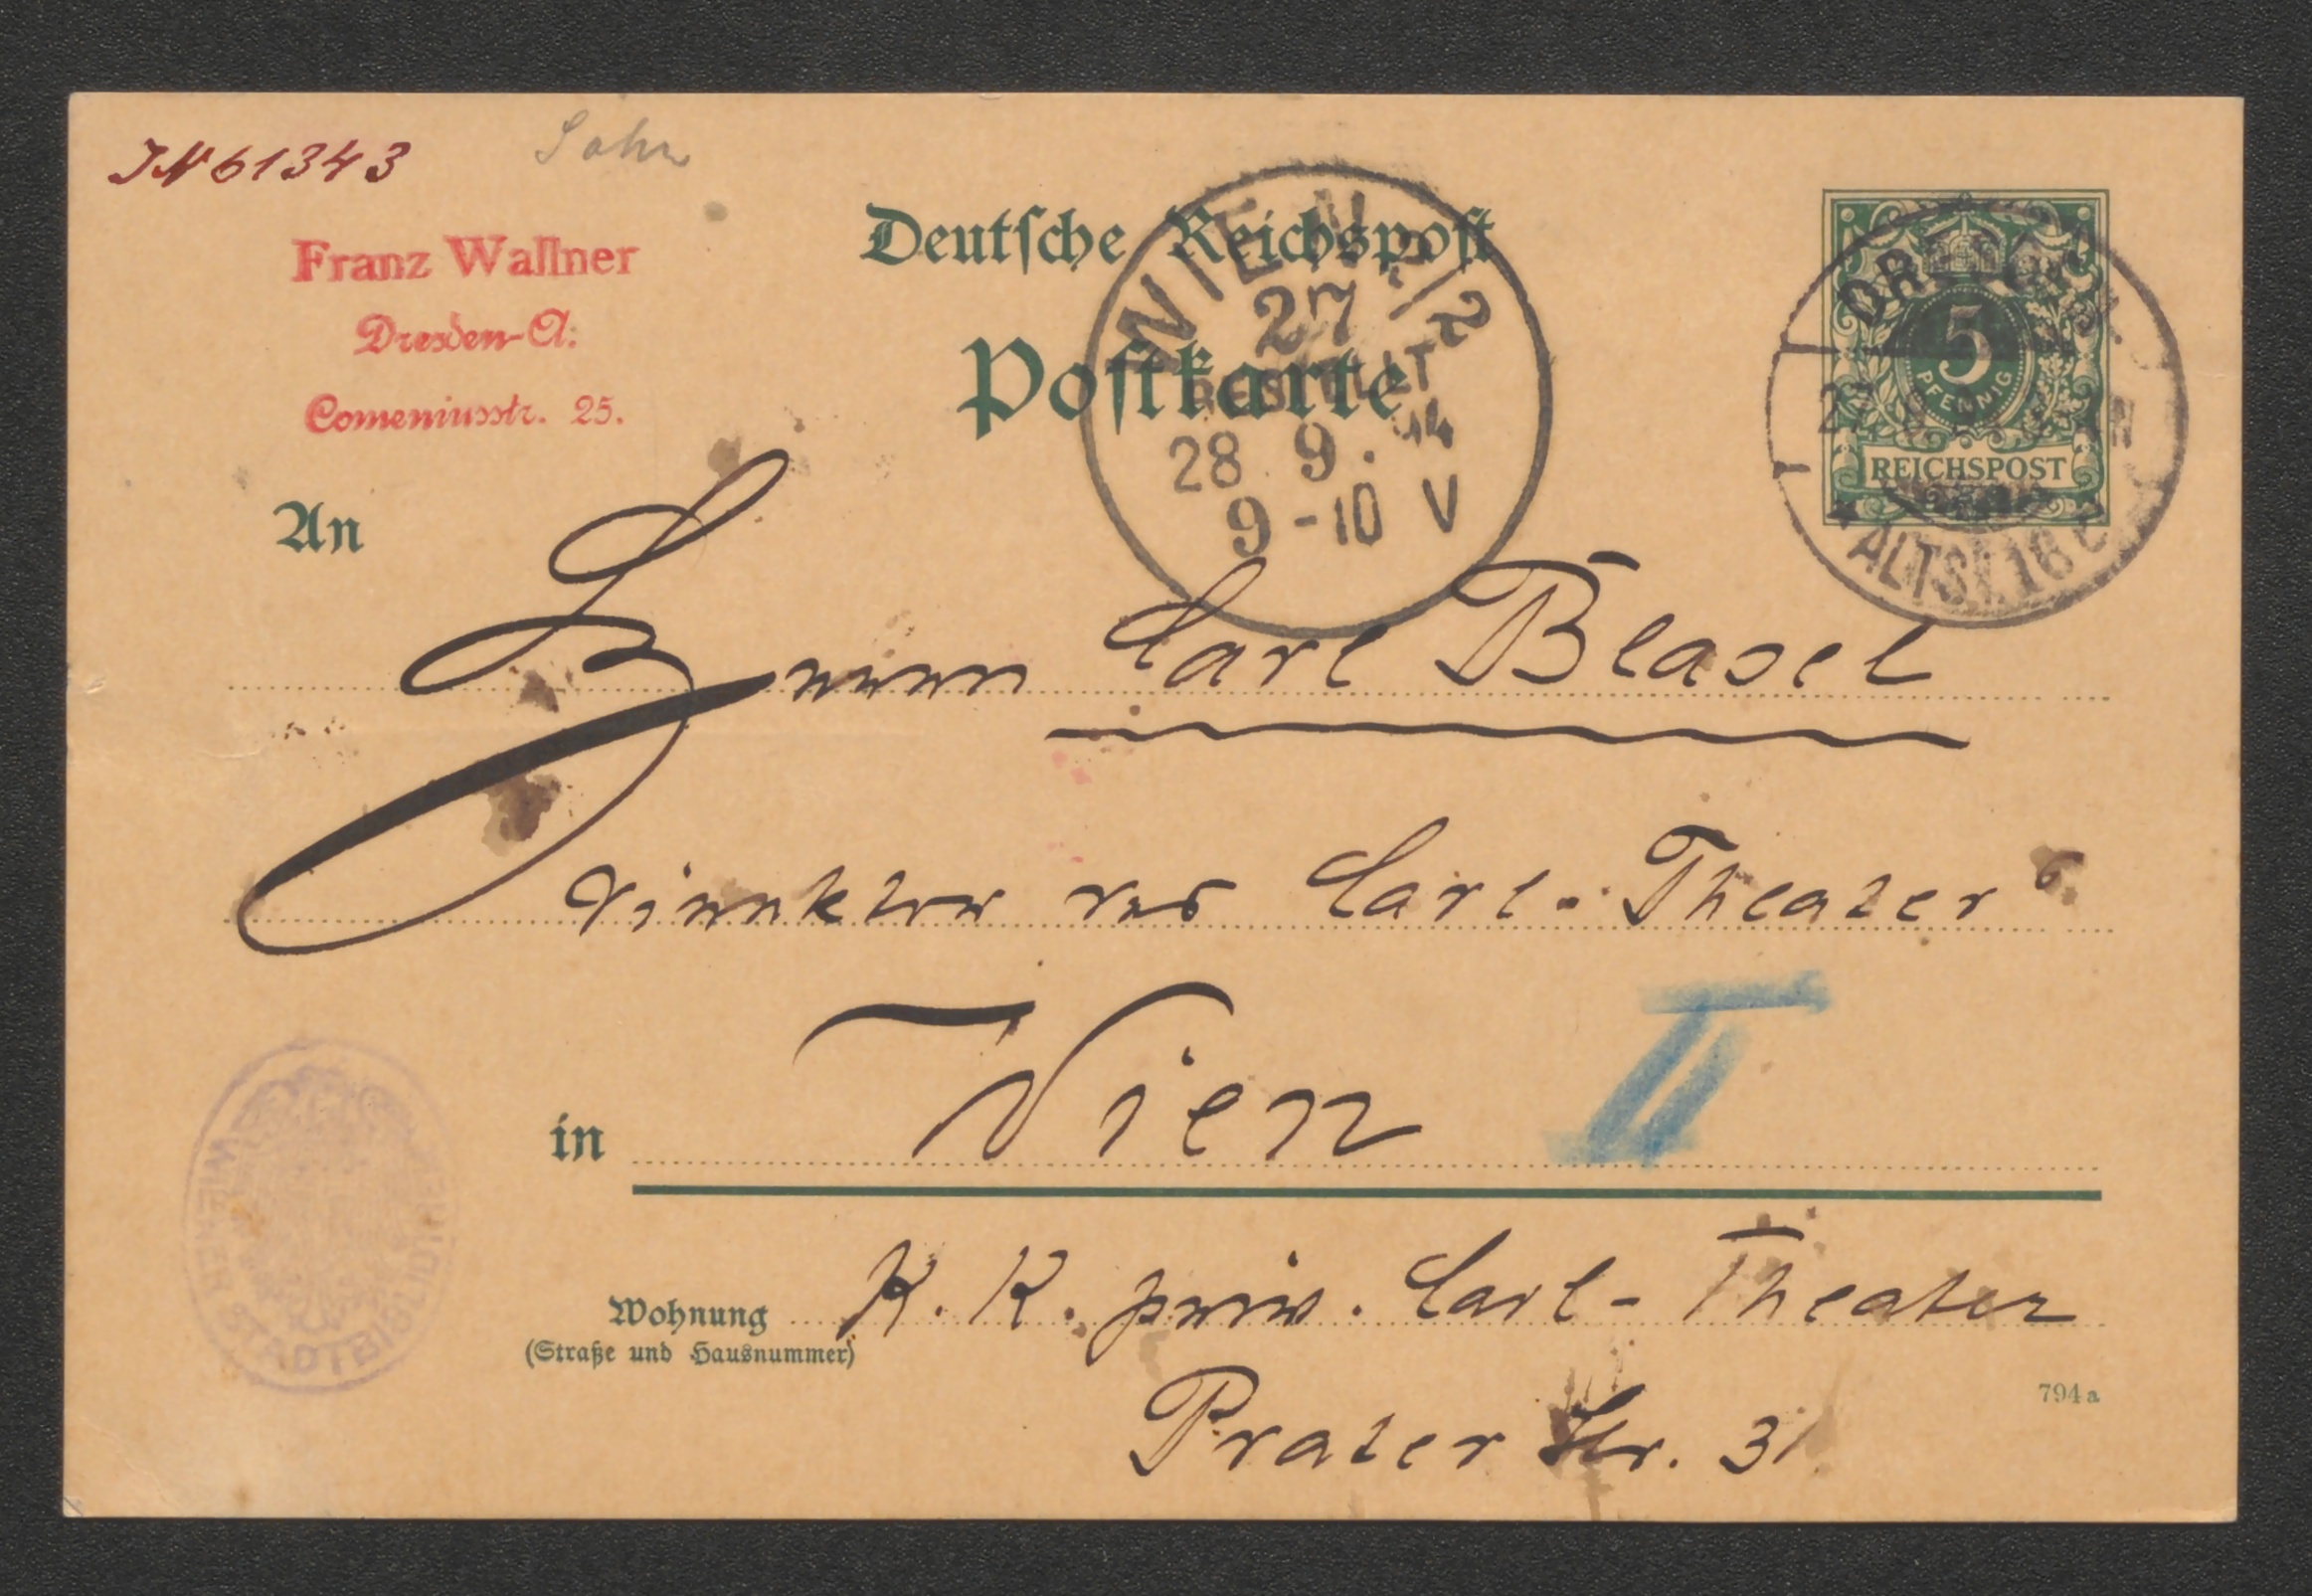 JN 61343
Sohn
Franz Wallner
Dresden-A:
Comeniusstr. 25.
Deutsche Reichspost
Postkarte
WIEN 2/2
27
BESTELLT
28. 9. 94
9-10 V
DRESDEN
ALTST. 16
5
PFENNIG
REICHSPOST
An
Herrn Carl Blasel
Direktor des Carl-Theaters
in Wien II
Wohnung K. K. priv. Carl-Theater
(Straße und Hausnummer)
794a
Prater Str. 31
WIENER STADTBIBLIOTHEK